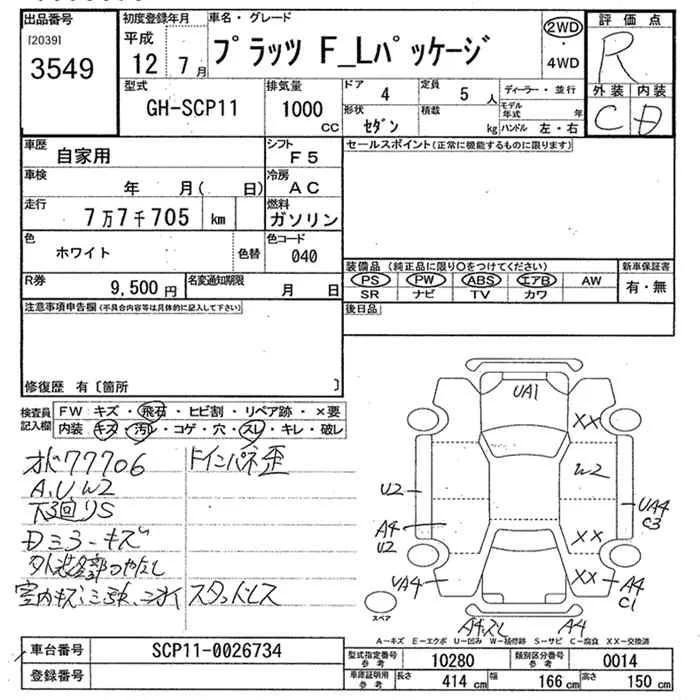 出品番号
[2039]
3549
初度登録年月
平成
12 7月
車名・グレード
プラッツ F_Lパッケージ
2WD
・
4WD
評価点
R
外装 内装
C D
型式
GH-SCP11
排気量
1000
CC
ドア 4
定員 5 人
形状 セダン
積載 kg
ディーラー・並行
モデル年式 年
ハンドル 左・右
車歴
自家用
シフト
F5
車検
年 月( 日)
冷房
AC
走行
7万7千705 km
燃料
ガソリン
色
ホワイト
色替
色コード
040
R券
9,500円
名変通知期限
月 日
セールスポイント(正常に機能するものに限ります)
装備品(純正品に限り○をつけてください)
PS PW ABS エアB AW
SR ナビ TV カワ
新車保証書
有・無
後日品
注意事項申告欄(不具合内容等は具体的に記入して下さい)
修復歴 有〔箇所 〕
検査員
記入欄
FW キズ・飛石・ヒビ割・リペア跡・×要
内装 キズ・汚レ・コゲ・穴・スレ・キレ・破レ
77706
A,U,W2
下廻りS
キズ
スタットレス
UA1
XX
W2
U2
UA4
C3
A4
U2
XX
UA4
XX
A4
C1
A4スレ
A4
スペア
A-キズ E-エクボ U-凹み W-補修跡 S-サビ C-腐食 XX-交換済
車台番号
SCP11-0026734
登録番号
型式指定番号
参考
10280
類別区分番号
参考
0014
車庫証明用
参考
長さ 414 cm
幅 166 cm
高さ 150 cm